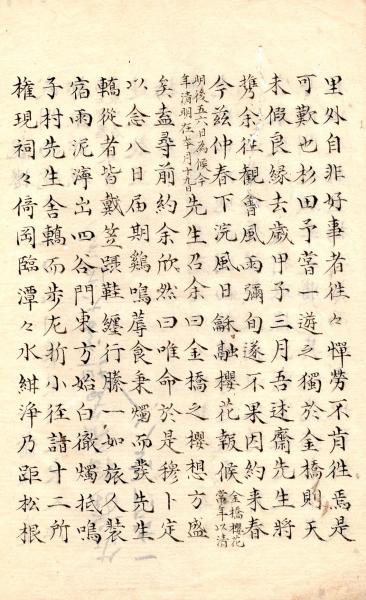 里外自非好事者徃々憚勞不肯徃焉是
可歎也杉田予嘗一遊之獨於金橋則天
未假良緣去歲甲子三月吾述齋先生將
携余徃觀會風雨彌旬遂不果因約来春
今茲仲春下浣風日龢融櫻花報候金橋櫻花常年以清
明後五六日為候今年清明在本月十九日先生召余曰金橋之櫻想方盛
矣盍尋前約余欣然曰唯命於是穆卜定
以念八日届期鷄鳴蓐食秉燭而發先生
轎從者皆戴笠躡鞋纏行縢一如旅人裝
宿雨泥濘出四谷門東方始白徹燭抵鳴
子村先生舍轎而歩左折小徑詣十二所
権現祠々倚岡臨潭々水紺淨乃距松根